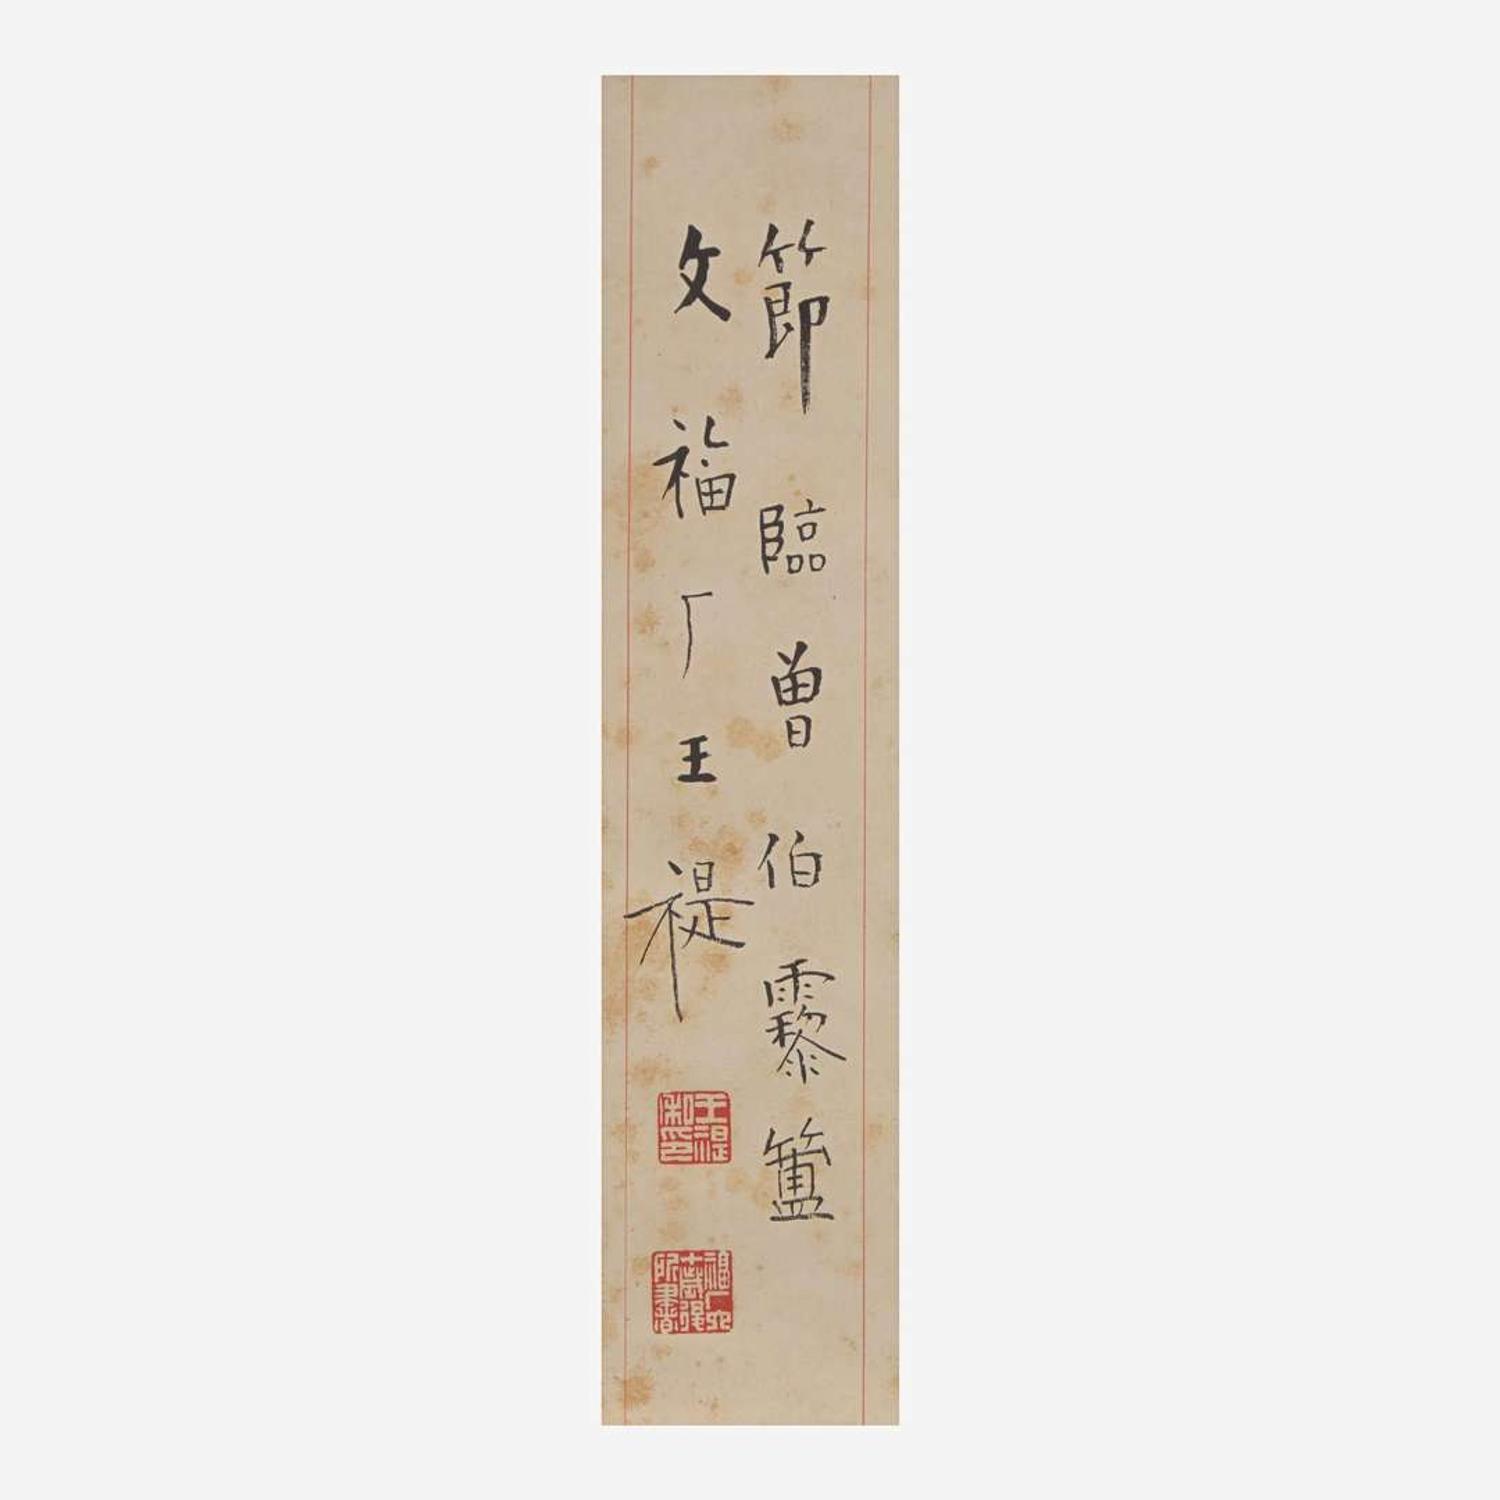 節臨曾伯霥簠
文福厂王禔
王禔私印
福厂六十歲後所書